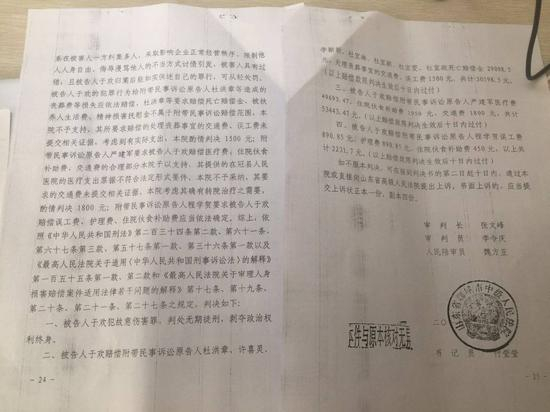 系在被害人一方纠集多人,采取影响企业正常经营秩序、限制他
人人身自由、侮辱谩骂他人的不当方式讨债引发,被害人具有过
错,且被告人于欢归案后能如实供述自己的罪行,可从轻处罚。
被告人于欢的犯罪行为给附带民事诉讼原告人杜洪章等造成的
丧葬费等损失应依法赔偿,杜洪章等要求赔偿死亡赔偿金、被扶
养人生活费、精神损害抚慰金不属于附带民事诉讼赔偿范围,本
院不予支持。其所要求赔偿的处理丧葬事宜的交通费、误工费未
提交相关证据,考虑到有实际支出,本院酌情判决 1500 元;附
带民事诉讼原告人严建军要求被告人于欢赔偿医疗费、住院伙食
补助费、交通费的合理部分本院予以支持,其提供的在冠县人民
医院的医疗支出票据不符合法定形式要件,本院不予采纳,其要
求的交通费未提交相关证据,本院考虑其确有转院治疗之需要,
酌情判决 1800 元;附带民事诉讼原告人程学贺要求被告人于欢
赔偿误工费、护理费、住院伙食补助费应当依法确定。综上,依
照《中华人民共和国刑法》第二百三十四条第二款、第六十一条、
第六十七条第三款、第五十七条第一款、第三十六条第一款以及
《最高人民法院关于适用〈中华人民共和国刑事诉讼法〉的解释》
第一百五十五条第一款、第二款和《最高人民法院关于审理人身
损害赔偿案件适用法律若干问题的解释》第十七条、第十九条、
第二十条、第二十一条、第二十七条之规定,判决如下:
一、被告人于欢犯故意伤害罪,判处无期徒刑,剥夺政治权
利终身。
二、被告人于欢赔偿附带民事诉讼原告人杜洪章、许喜灵、
- 24 -
李新新、
处理丧葬事宜的交通费、误工费 1500 元,共计30598.5元。
(以上赔偿款限判决生效后十日内过付)
三、被告人于欢赔偿附带民事诉讼原告人严建军医疗费
49693.47元,住院伙食补助费 1950 元,交通费 1800 元,共计
53443.47元。(以上赔偿款限判决生效后十日内过付)
四、被告人于欢赔偿附带民事诉讼原告人程学贺误工费
890.85元,护理费 890.85 元,住院伙食补助费 450 元,以上共
计 2231.7元。(以上赔偿款限判决生效后十日内过付)
如不服本判决,可在接到判决书的第二日起十日内,通过本
院或直接向山东省高级人民法院提出上诉,书面上诉的,应当提
交上诉状正本一份,副本四份。
审 判 长 张文峰
审 判 员 李令庆
人民陪审员 魏方亚
二〇
本件与原本核对无异
书 记 员